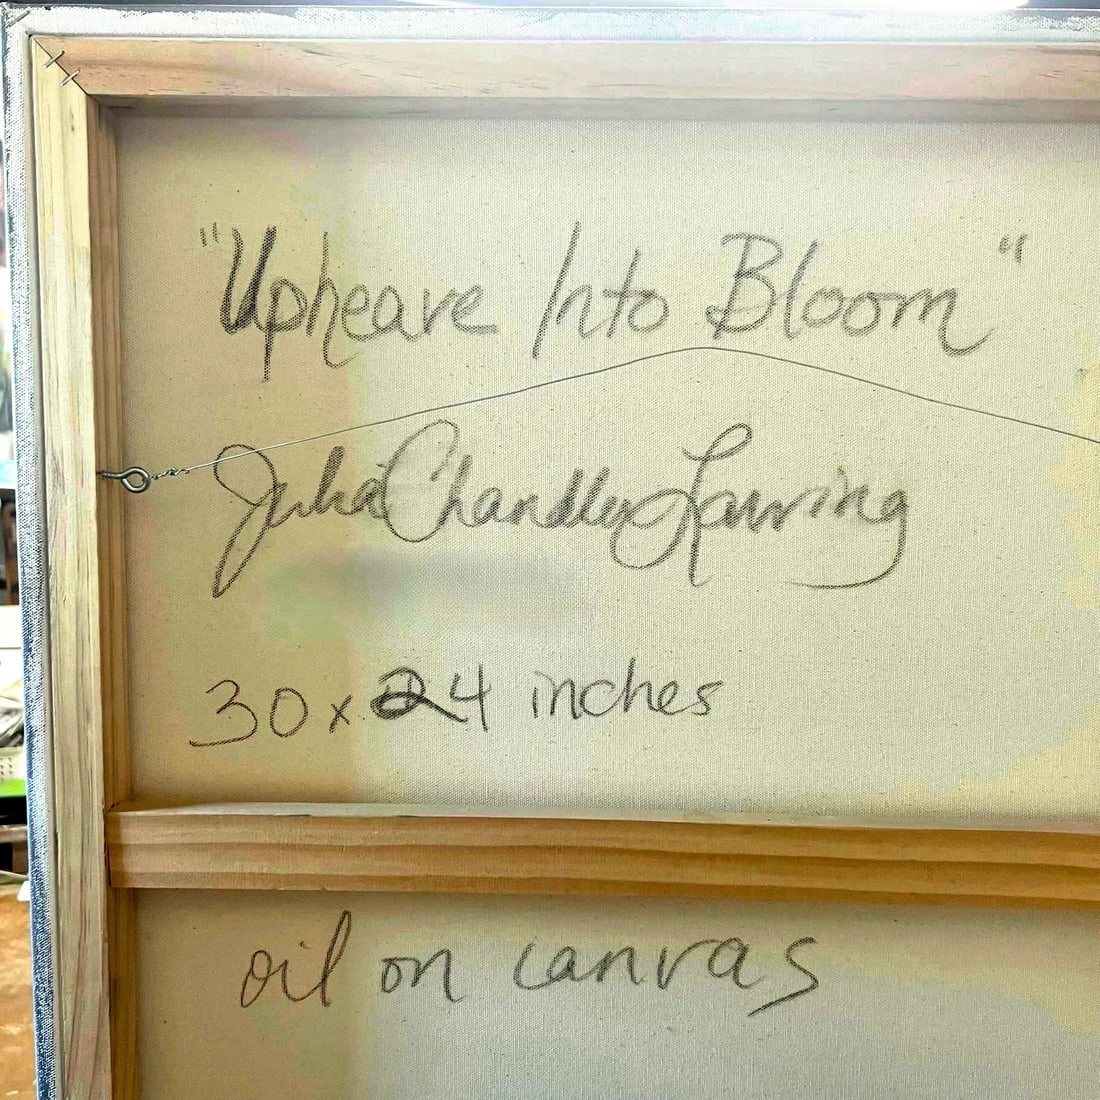 "Upheave Into Bloom"
Julia Chandler Lawring
30 x 24 inches
oil on canvas